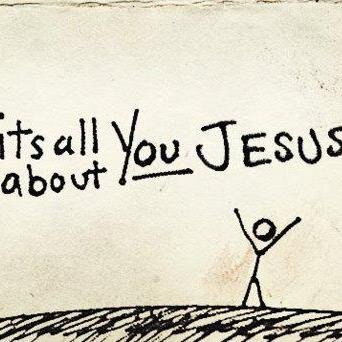 its all You JESUS
about